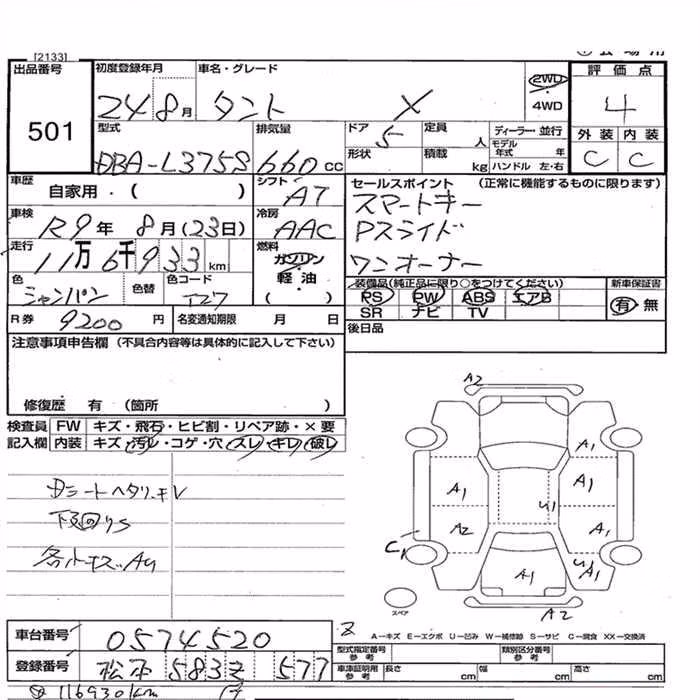 [2133]
出品番号 501
初度登録年月 24 8月
車名・グレード タント X
2WD 4WD
評価点 4
外装 内装
C C
型式 DBA-L375S
排気量 660 CC
ドア 5
定員 人
ディーラー・並行
形状
積載 kg
モデル年式 年
ハンドル 左・右
車歴 自家用・( )
シフト AT
セールスポイント (正常に機能するものに限ります)
スマートキー
Pスライド
ワンオーナー
車検 R9年 8月(23日)
冷房 AAC
走行 11万6千933km
燃料 ガソリン 軽油 ( )
色 シャンパン
色替
色コード T27
装備品(純正品に限り○をつけてください)
PS PW ABS エアB
SR ナビ TV
新車保証書
有・無
R券 9200円
名変通知期限 月 日
後日品
注意事項申告欄 (不具合内容等は具体的に記入して下さい)
修復歴 有 (箇所 )
検査員 FW キズ・飛石・ヒビ割・リペア跡・×要
記入欄 内装 キズ・汚レ・コゲ・穴・スレ・キレ・破レ
下回りS
A2
A1
A1 A1
U1
A2 A1
C1
A1
U1 A1
A2
スペア
A-キズ E-エクボ U-凹み W-補修跡 S-サビ C-腐食 XX-交換済
車台番号 0574520
型式指定番号 参考
類別区分番号 参考
登録番号 松本 583 そ 577
車検証用 参考 長さ cm 幅 cm 高さ cm
116930km